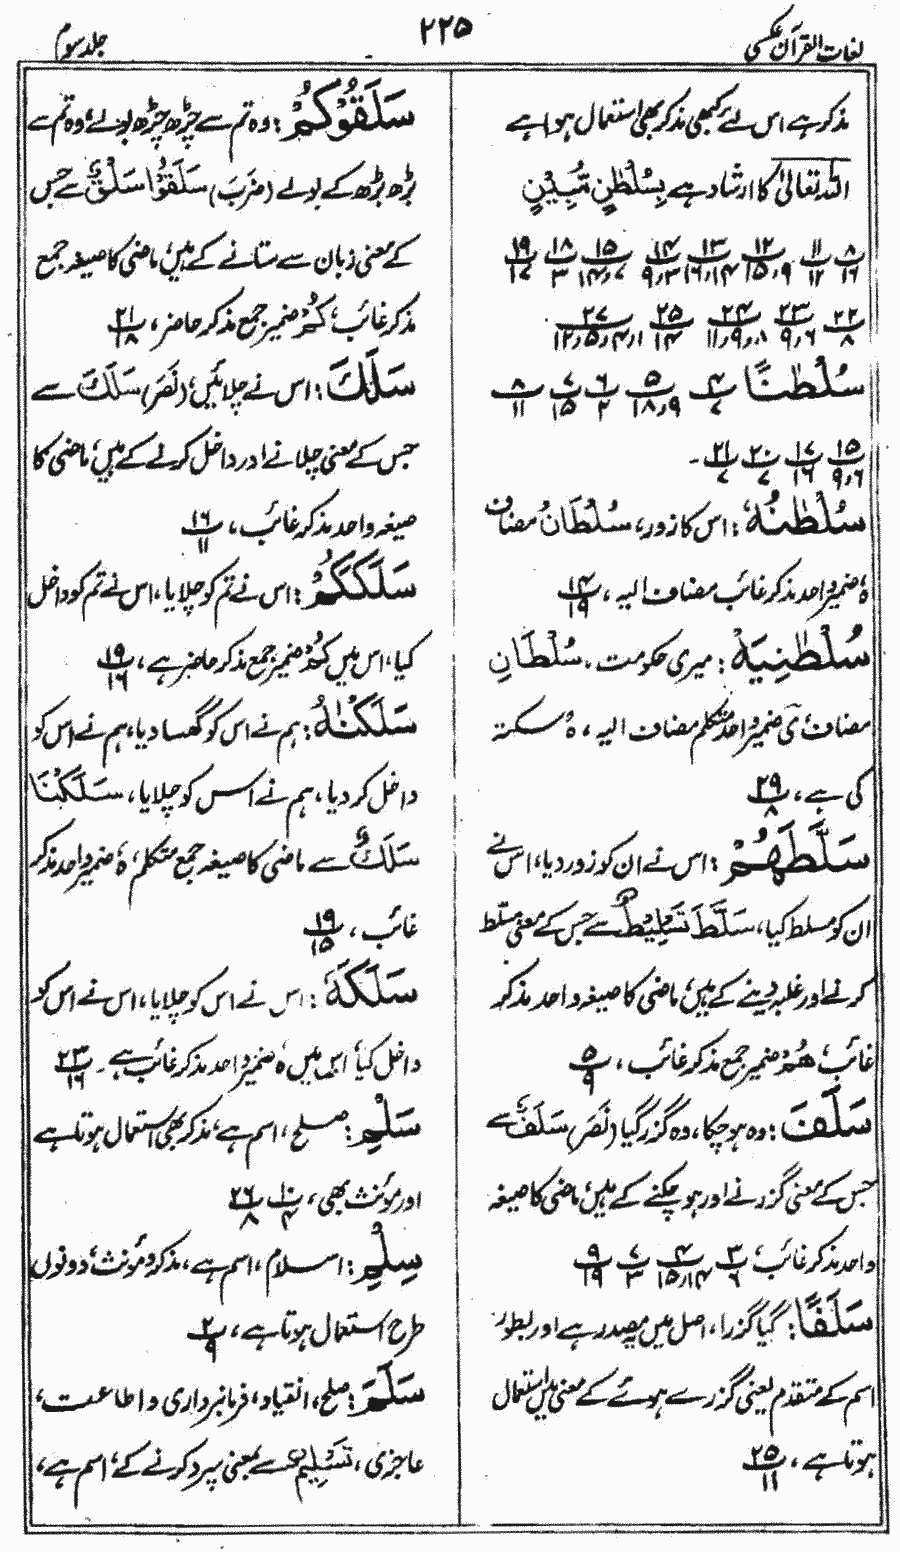 لغات القرآن عکسی
۲۲۵
جلد سوم
مذکر ہے اس لئے کبھی مذکر بھی استعمال ہوا ہے
اللہ تعالیٰ کا ارشاد ہے بِسُلْطٰنٍ مُّبِیْنٍ
۸/۱۶ ۱۱/۱۲ ۱۲/۱۵،۹ ۱۳/۱۶،۱۴ ۱۴/۹،۳ ۱۵/۱۴،۷ ۱۸/۳ ۱۹/۱۷
۲۲/۸ ۲۳/۹،۶ ۲۴/۱۱،۹،۸ ۲۵/۱۴ ۲۷/۱۲،۵،۴،۱
سُلْطٰنًا ۴/۷ ۵/۱۸،۹ ۶/۲ ۷/۱۵ ۸/۱۱
۱۵/۹،۶ ۱۷/۱۶ ۲۰/۷ ۲۱/۷ ۔
سُلْطٰنُہٗ : اس کا زور، سُلْطَانُ مضاف
ہٗ ضمیر واحد مذکر غائب مضاف الیہ ، ۱۴/۱۹
سُلْطٰنِیَہْ : میری حکومت ۔ سُلْطَانِ
مضاف، یَ ضمیر واحد متکلم مضاف الیہ ، ہْ سکتہ
کی ہے ، ۲۹/۸
سَلَّطَہُمْ : اس نے ان کو زور دیا، اس نے
ان کو مسلط کیا، سَلَّطَ تَسْلِیْطٌ سے جس کے معنی مسلط
کرنے اور غلبہ دینے کے ہیں، ماضی کا صیغہ واحد مذکر
غائب، ھُمْ ضمیر جمع مذکر غائب ، ۵/۹
سَلَفَ : وہ ہو چکا، وہ گزر گیا (نَصَرَ) سَلَفٌ سے
جس کے معنی گزرنے اور ہو چکنے کے ہیں، ماضی کا صیغہ
واحد مذکر غائب، ۳/۶ ۴/۱۵،۱۴ ۷/۳ ۹/۱۹
سَلَفًا : گیا گزرا، اصل میں مصدر ہے اور بطور
اسم کے متقدم یعنی گزرے ہوئے کے معنی میں استعمال
ہوتا ہے ، ۲۵/۱۱
سَلَقُوْکُمْ : وہ تم سے چڑھ چڑھ بولے، وہ تم سے
بڑھ بڑھ کے بولے (ضَرَبَ) سَلَقُوْا سَلْقٌ سے جس
کے معنی زبان سے ستانے کے ہیں، ماضی کا صیغہ جمع
مذکر غائب، کُمْ ضمیر جمع مذکر حاضر ، ۲۱/۱۸
سَلَکَ : اس نے چلائیں، (نَصَرَ) سَلَکَ سے
جس کے معنی چلانے اور داخل کرنے کے ہیں، ماضی کا
صیغہ واحد مذکر غائب ، ۱۶/۱۱
سَلَکَکُمْ : اس نے تم کو چلایا، اس نے تم کو داخل
کیا، اس میں کُمْ ضمیر جمع مذکر حاضر ہے ، ۱۹/۱۶
سَلَکْنٰہُ : ہم نے اس کو گھسا دیا، ہم نے اس کو
داخل کر دیا، ہم نے اس کو چلایا، سَلَکْنَا
سَلَکَ سے ماضی کا صیغہ جمع متکلم، ہٗ ضمیر واحد مذکر
غائب ، ۱۹/۱۵
سَلَکَہٗ : اس نے اس کو چلایا، اس نے اس کو
داخل کیا، اس میں ہٗ ضمیر واحد مذکر غائب ہے ۔ ۲۳/۱۶
سَلْمِ : صلح ، اسم ہے، مذکر بھی استعمال ہوتا ہے
اور مؤنث بھی ، ۱۰/۴ ۲۶/۸
سِلْمِ : اسلام، اسم ہے، مذکر و مؤنث، دونوں
طرح استعمال ہوتا ہے ، ۲/۹
سَلَمَ : صلح، انقیاد، فرمانبرداری و اطاعت،
عاجزی ، تَسْلِیْمٌ سے بمعنی سپرد کرنے کے، اسم ہے،